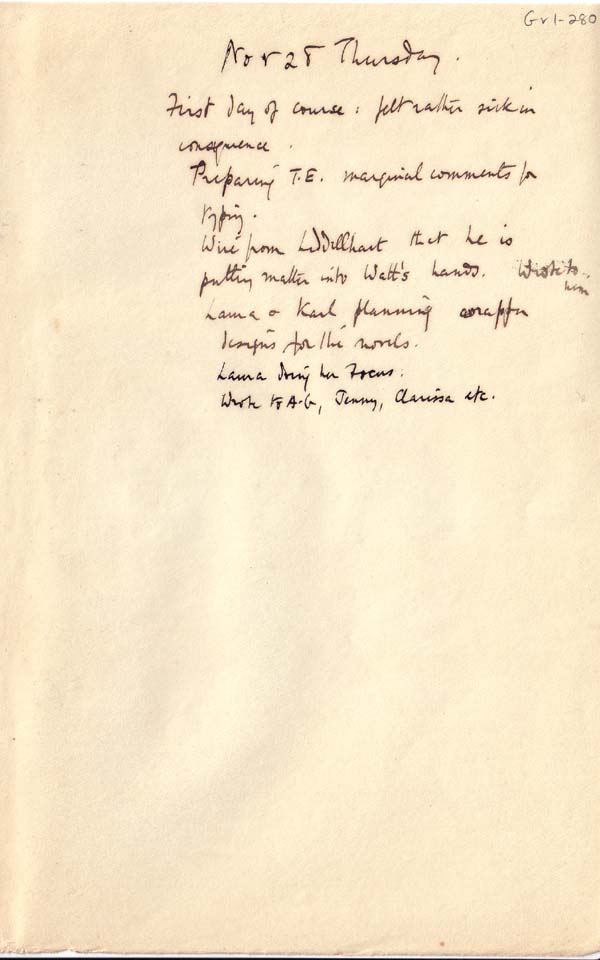 Gr1-280
Nov 28 Thursday.
First day of course: felt rather sick in
consequence.
Preparing T.E. marginal comments for
typing.
Wire from Liddellhart that he is
putting matter into Watt's hands. Wrote to
him
Laura & Karl planning wrapper
designs for the novels.
Laura doing her Focus.
Wrote to A-G, Jenny, Clarissa etc.